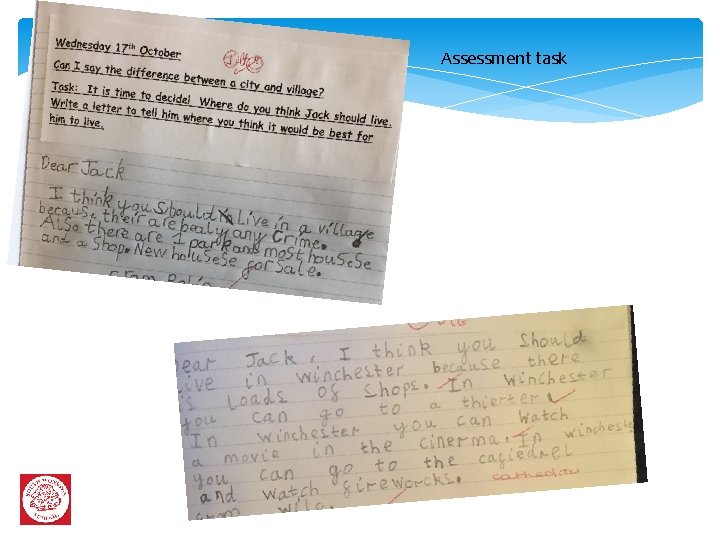 Assessment task
Wednesday 17th October
Can I say the difference between a city and village?
Task: It is time to decide! Where do you think Jack should live.
Write a letter to tell him where you think it would be best for
him to live.
Dear Jack
I think you should live in a village
because their are bealy any Crime.
Also there are 1 park and most housese
and a shop. New housese for sale.
ear Jack, I think you should
live in winchester because there
is Loads of shops. In winchester
you can go to a thierter.
In winchester you can watch
a movie in the cinerma. In winchest
you can go to the cagiedrel
and watch fireworcks. cathedra
from